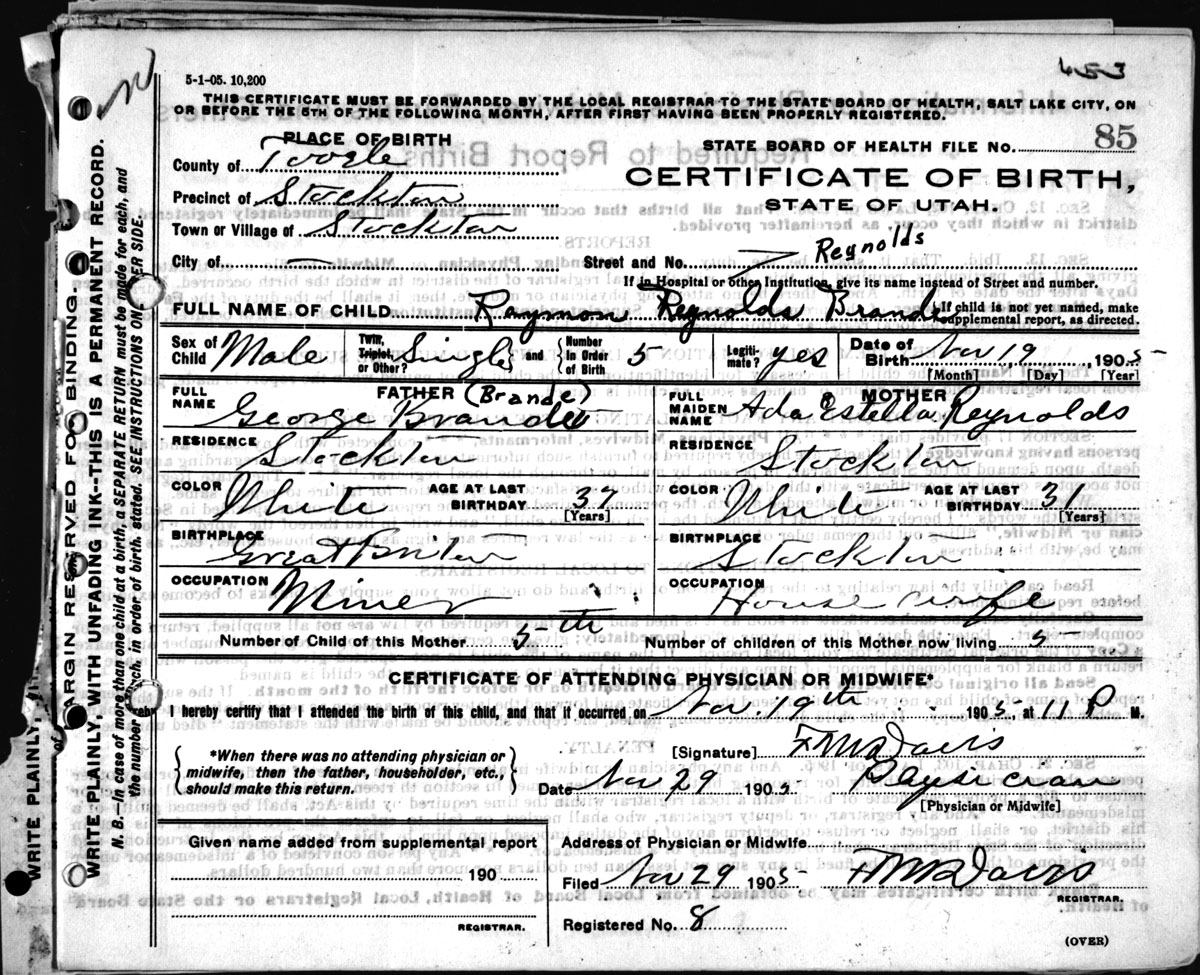 453
5-1-05. 10,200
THIS CERTIFICATE MUST BE FORWARDED BY THE LOCAL REGISTRAR TO THE STATE BOARD OF HEALTH, SALT LAKE CITY, ON
OR BEFORE THE 5TH OF THE FOLLOWING MONTH, AFTER FIRST HAVING BEEN PROPERLY REGISTERED.
PLACE OF BIRTH
STATE BOARD OF HEALTH FILE NO. 85
County of Tooele
CERTIFICATE OF BIRTH,
Precinct of Stockton
STATE OF UTAH.
Town or Village of Stockton
City of —
Street and No. Reynolds
If in Hospital or other Institution, give its name instead of Street and number.
FULL NAME OF CHILD Raymon Reynolds Brande
If child is not yet named, make supplemental report, as directed.
Sex of Child Male
Twin, Triplet, or Other? Single and Number in Order of Birth 5
Legitimate? yes
Date of Birth Nov 19 1905
[Month] [Day] [Year]
FATHER (Brande)
MOTHER
FULL NAME George Brande
FULL MAIDEN NAME Ada Estella Reynolds
RESIDENCE Stockton
RESIDENCE Stockton
COLOR White AGE AT LAST BIRTHDAY 37 [Years]
COLOR White AGE AT LAST BIRTHDAY 31 [Years]
BIRTHPLACE Great Britan
BIRTHPLACE Stockton
OCCUPATION Miner
OCCUPATION House wife
Number of Child of this Mother 5th
Number of children of this Mother now living 5
CERTIFICATE OF ATTENDING PHYSICIAN OR MIDWIFE*
I hereby certify that I attended the birth of this child, and that it occurred on Nov. 19th 1905 at 11 P M.
*When there was no attending physician or midwife, then the father, householder, etc., should make this return.
[Signature] F M Davis
Date Nov 29 1905 Physician
[Physician or Midwife]
Given name added from supplemental report
190
REGISTRAR.
Address of Physician or Midwife
Filed Nov 29 1905 F M Davis
REGISTRAR.
Registered No. 8
(OVER)
MARGIN RESERVED FOR BINDING.
WRITE PLAINLY, WITH UNFADING INK--THIS IS A PERMANENT RECORD.
N. B.—In case of more than one child at a birth, a SEPARATE RETURN must be made for each, and
the number of each, in order of birth, stated. SEE INSTRUCTIONS ON OTHER SIDE.
WRITE PLAINLY,